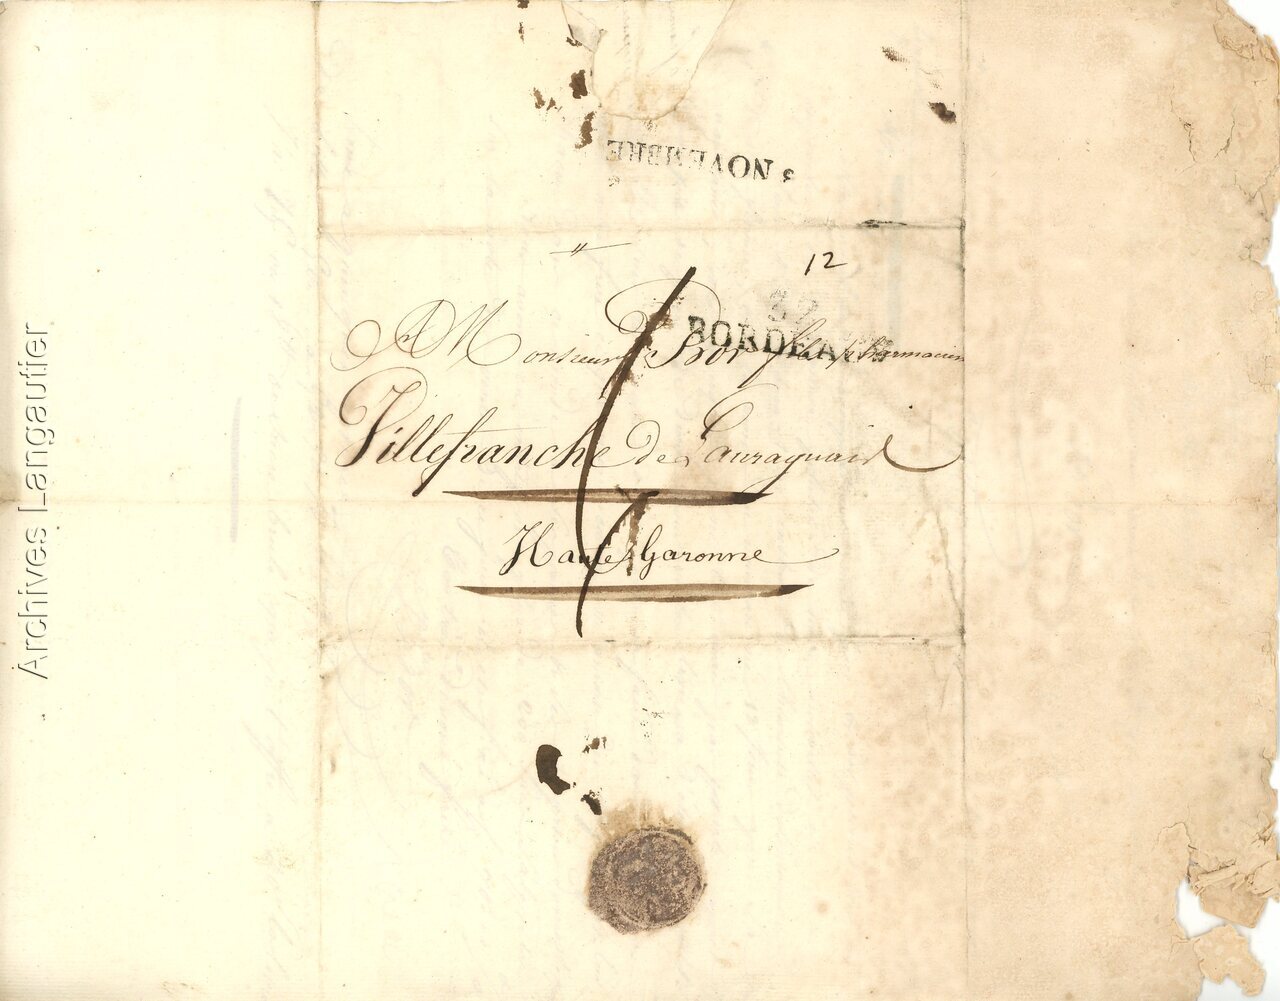 3 NOVEMBRE
12
32
BORDEAUX
A Monsieur Bor fils Pharmacien
Villefranche de Lauraguais
Haute Garonne
Archives Langautier